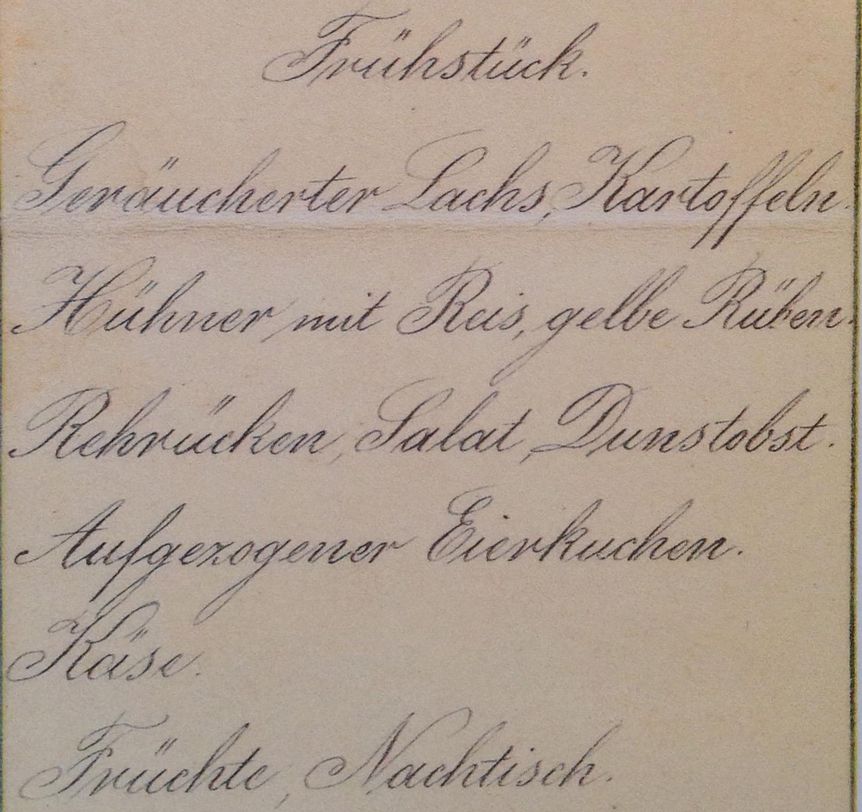 Frühstück.
Geräucherter Lachs, Kartoffeln.
Hühner mit Reis, gelbe Rüben.
Rehrücken, Salat, Dunstobst.
Aufgezogener Eierkuchen.
Käse.
Früchte, Nachtisch.